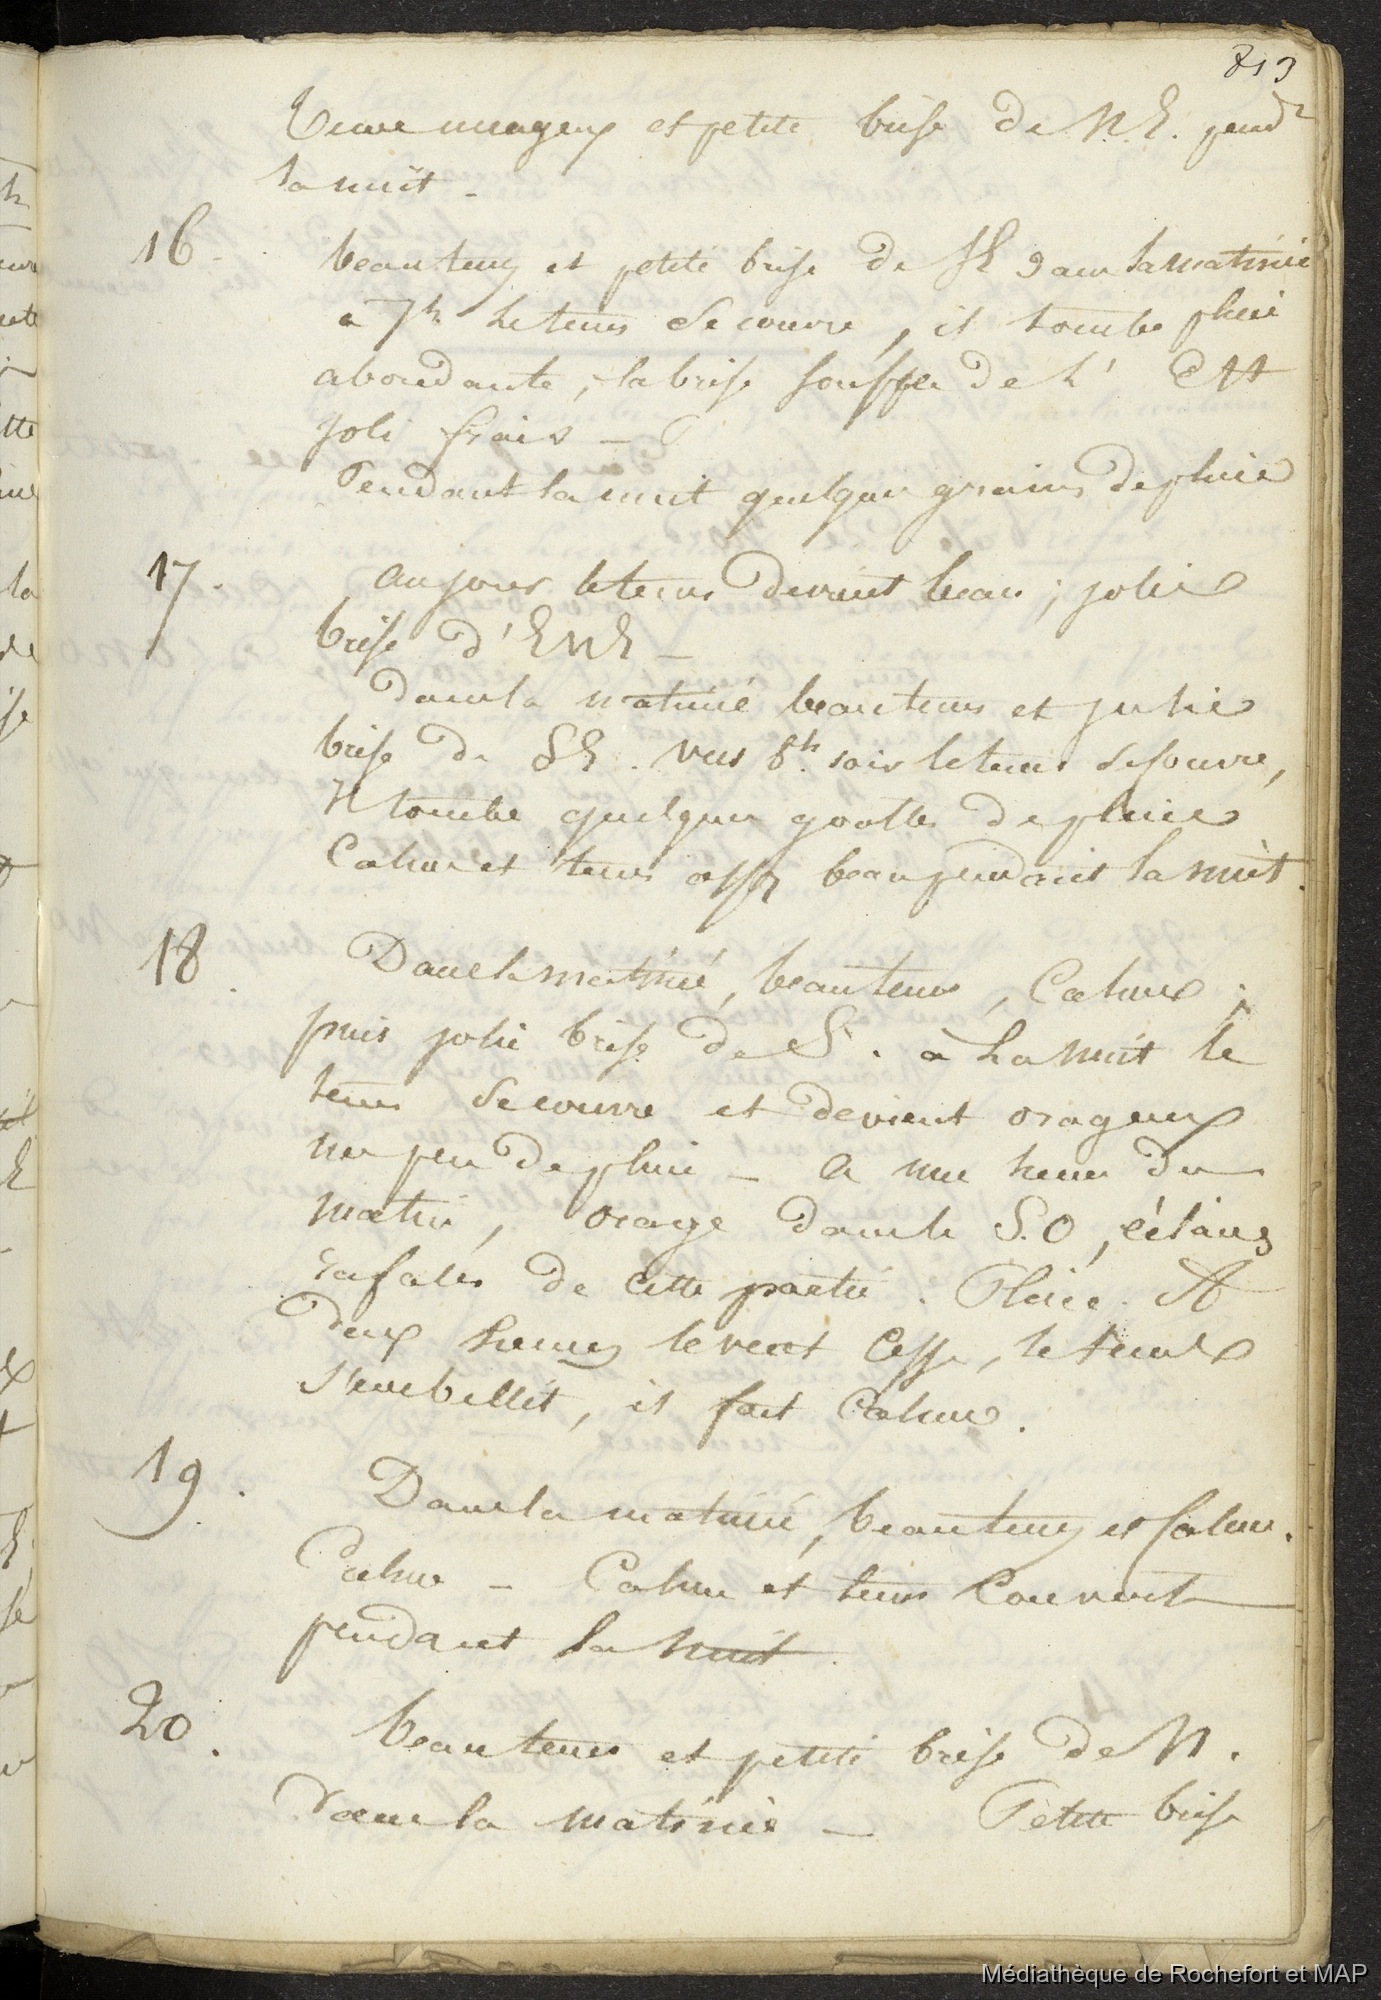 813
Tems nuageux et petite brise de N.E. pend.t
la nuit _
16. beau tems et petite brise de SE dans la matinée
à 7h le tems se couvre, il tombe pluie
abondante, la brise souffle de l' Est
joli frais _
Pendant la nuit quelques grains de pluie
17. au jour le tems devient beau ; jolie
brise d'ENE _
dans la matinée beau tems et jolie
brise de SE. Vers 8h. soir le tems se couvre,
Il tombe quelques gouttes de pluie
Calme et tems assez beau pendant la nuit.
18. Dans la matinée, beau tems, Calme ;
puis jolie brise de S. à la nuit le
tems se couvre et devient orageux
un peu de pluie _ à une heure du
matin, orage dans le S.O, éclairs
rafales de cette partie. Pluie. A
deux heures le vent cesse, le tems
s'embellit, il fait Calme.
19. Dans la matinée, beau tems et Calme.
Calme _ Calme et tems Couvert
pendant la nuit.
20. beau tems et petite brise de N.
dans la matinée _ Petite brise
Médiathèque de Rochefort et MAP